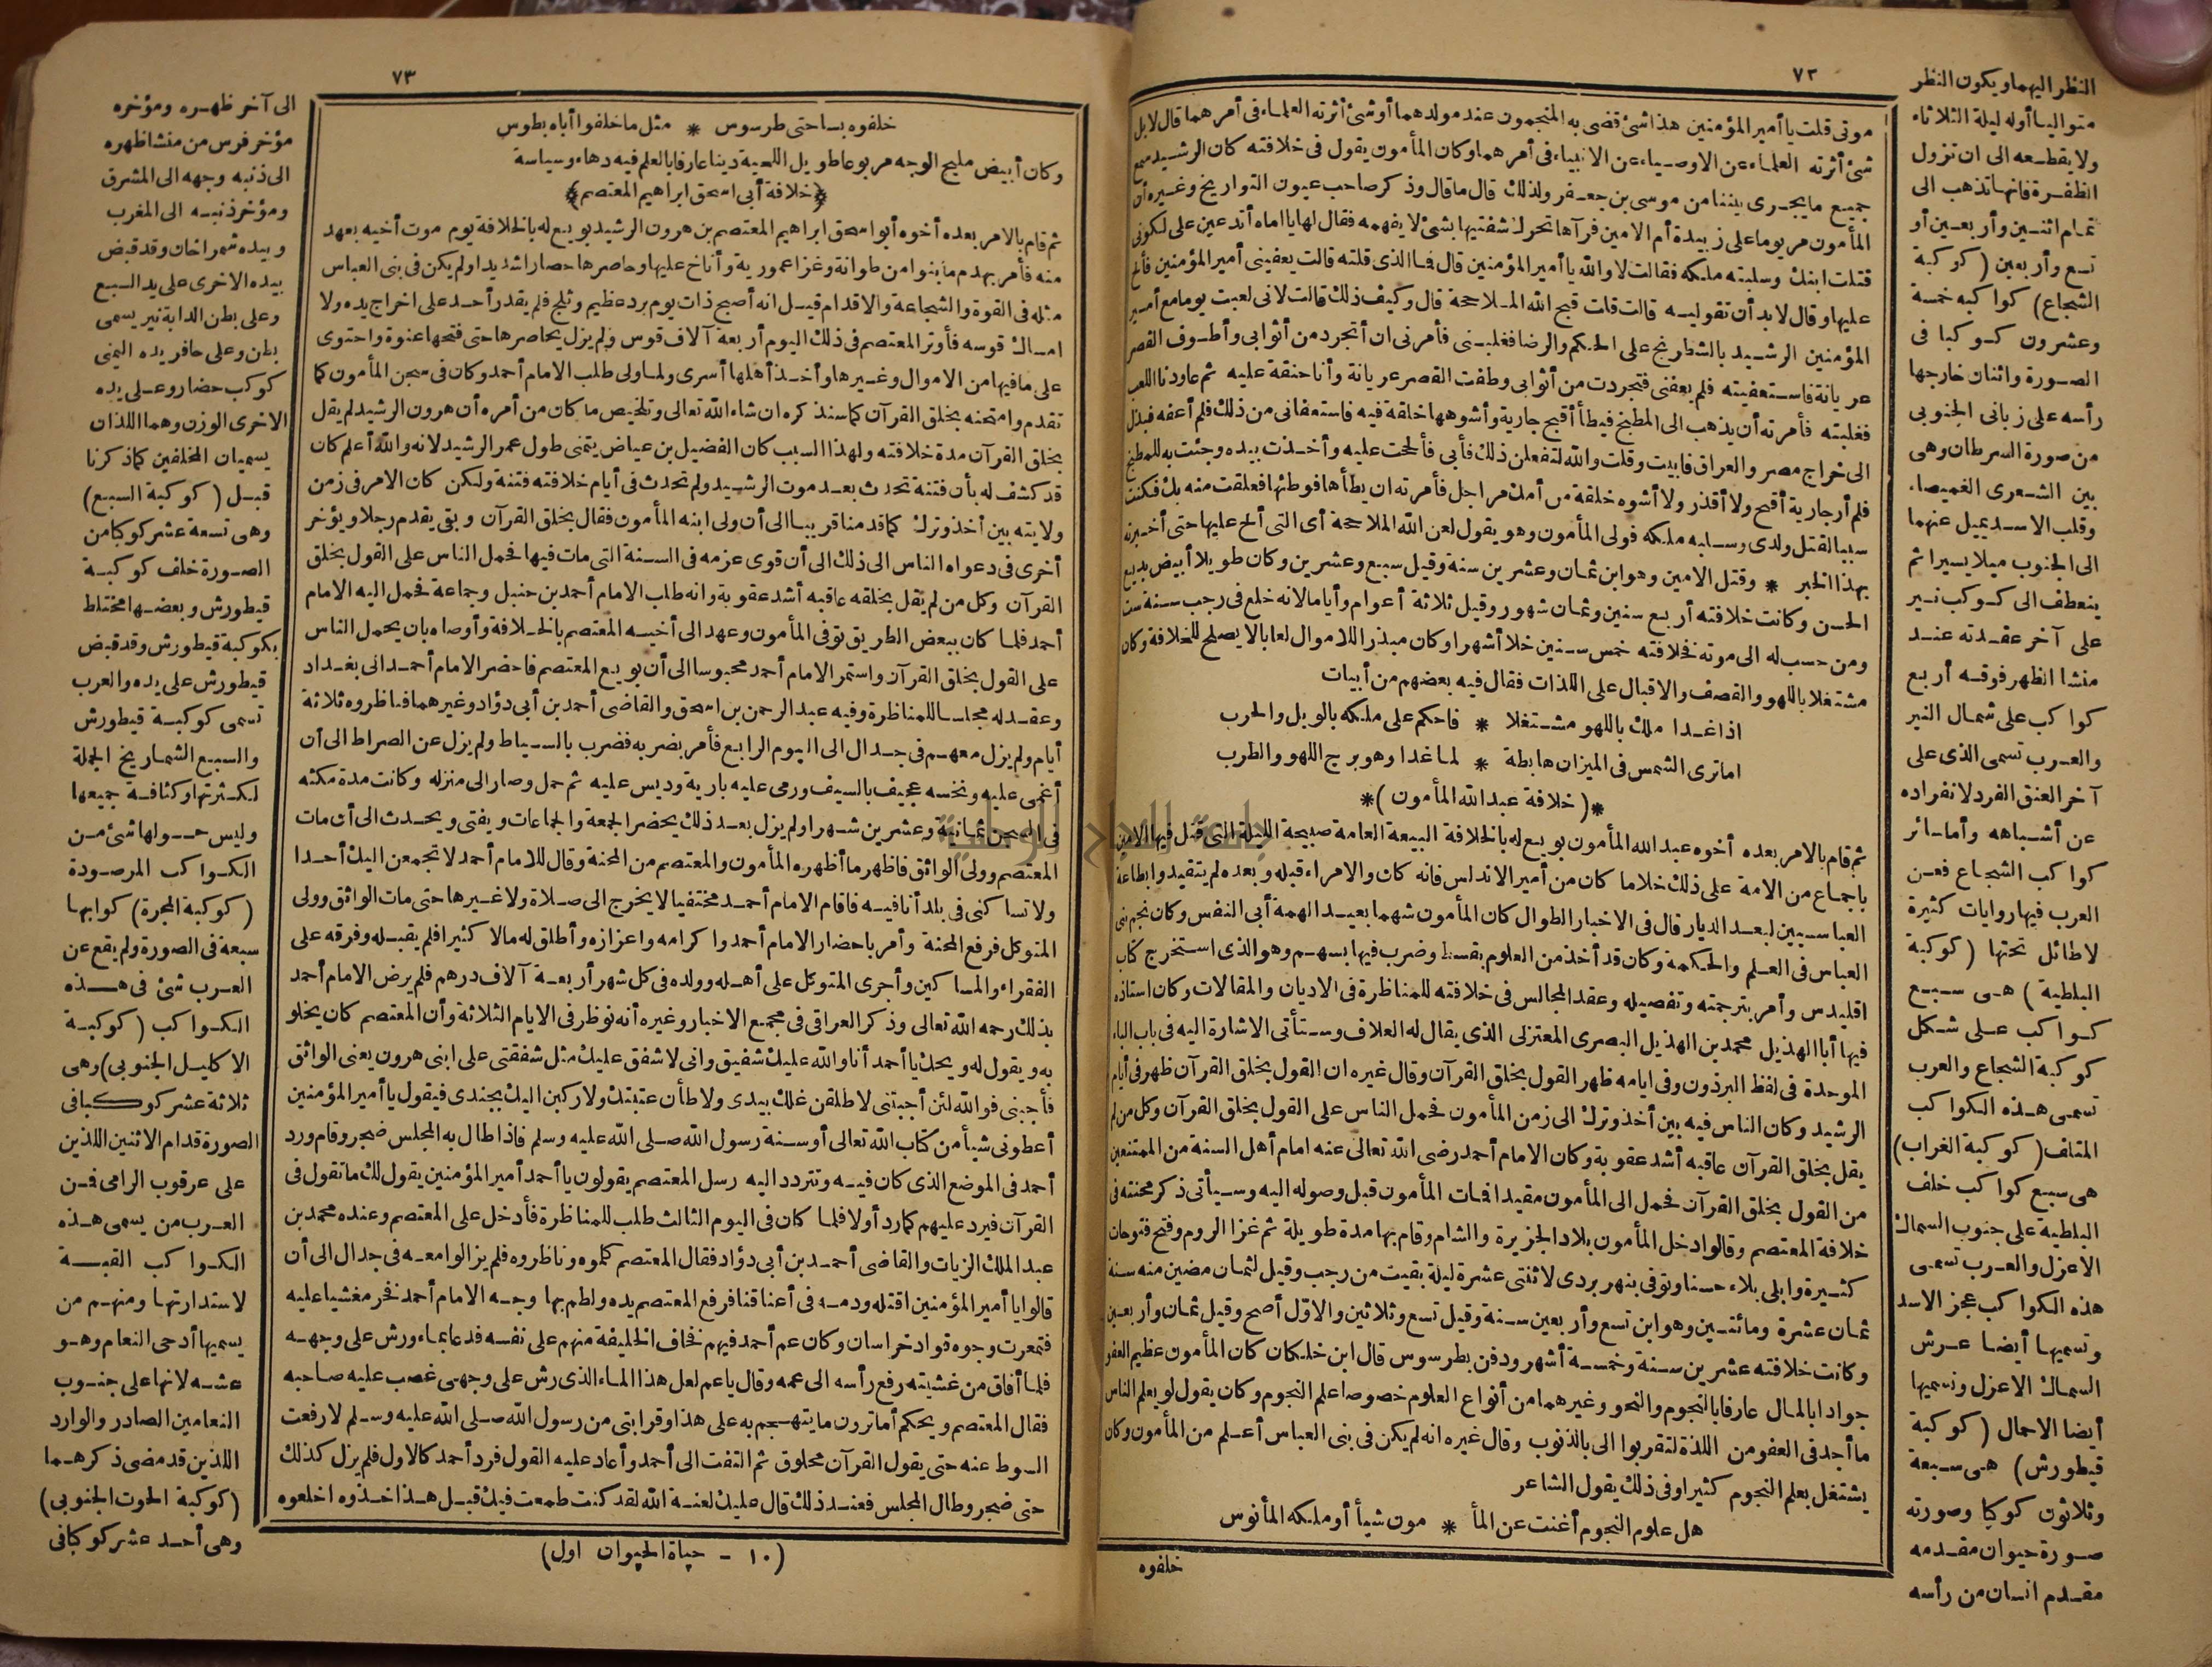 ٧٢
موتى قلت يا أمير المؤمنين هذا شئ قضى به المنجمون عند مولدهما أو شئ أثرته العلماء فى أمرهما قال لا بل
شئ أثرته العلماء عن الاوصياء عن الانبياء فى أمرهما وكان المأمون يقول فى خلافته كان الرشيد سمع
جميع ما يجرى بيننا من موسى بن جعفر ولذلك قال ما قال وذكر صاحب عيون التواريخ وغيره أن
المأمون مر يوما على زبيدة أم الامين فرآها تحرك شفتيها بشئ لا يفهمه فقال لها يا اماه أتدعين على لكونى
قتلت ابنك وسلبته ملكه فقالت لا والله يا أمير المؤمنين قال فما الذى قلته قالت يعفينى أمير المؤمنين فألح
عليها وقال لا بد أن تقوليه قالت قلت قبح الله الملاححة قال وكيف ذلك قالت لانى لعبت يوما مع أمير
المؤمنين الرشيد بالشطرنج على الحكم والرضا فغلبنى فأمرنى ان أتجرد من أثوابى وأطوف القصر
عريانة فاستعفيته فلم يعفنى فتجردت من أثوابى وطفت القصر عريانة وأنا حنقة عليه ثم عاودنا اللعب
فغلبته فأمرته أن يذهب الى المطبخ فيطأ أقبح جارية وأشوهها خلقة فيه فاستعفانى من ذلك فلم أعفه فبذل
الى خراج مصر والعراق فابيت وقلت والله لتفعلن ذلك فأبى فألححت عليه وأخذت بيده وجئت به للمطبخ
فلم أر جارية أقبح ولا أقذر ولا أشوه خلقة من أمك مراجل فأمرته ان يطأها فوطئها فعلقت منه بك فكنت
سببا لقتل ولدى وسلبه ملكه فولى المأمون وهو يقول لعن الله الملاححة أى التى ألح عليها حتى أخبرته
بهذا الخبر * وقتل الامين وهو ابن ثمان وعشرين سنة وقيل سبع وعشرين وكان طويلا أبيض بديع
الحسن وكانت خلافته أربع سنين وثمان شهور وقيل ثلاثة أعوام وأياما لانه خلع فى رجب سنة ست
ومن حسب له الى موته فخلافته خمس سنين خلا أشهرا وكان مبذرا للاموال لعابا لا يصلح للخلافة وكان
مشتغلا باللهو والقصف والاقبال على اللذات فقال فيه بعضهم من أبيات
اذا غدا ملك باللهو مشتغلا * فاحكم على ملكه بالويل والحرب
اما ترى الشمس فى الميزان هابطة * لما غدا وهو برج اللهو والطرب
*( خلافة عبد الله المأمون )*
ثم قام بالامر بعده أخوه عبد الله المأمون بويع له بالخلافة البيعة العامة صبيحة الليلة التى قتل فيها الامين
باجماع من الامة على ذلك خلا ما كان من أمير الاندلس فانه كان والامراء قبله وبعده لم يتقيدوا بطاعة
العباسيين لبعد الديار قال فى الاخبار الطوال كان المأمون شهما بعيد الهمة أبى النفس وكان نجم بنى
العباس فى العلم والحكمة وكان قد أخذ من العلوم بقسط وضرب فيها بسهم وهو الذى استخرج كتاب
اقليدس وأمر بترجمته وتفصيله وعقد المجالس فى خلافته للمناظرة فى الاديان والمقالات وكان استاذه
فيها أبا الهذيل محمد بن الهذيل البصرى المعتزلى الذى يقال له العلاف وستأتى الاشارة اليه فى باب الباء
الموحدة فى لفظ البرذون وفى ايامه ظهر القول بخلق القرآن وقال غيره ان القول بخلق القرآن ظهر فى أيام
الرشيد وكان الناس فيه بين أخذ وترك الى زمن المأمون فحمل الناس على القول بخلق القرآن وكل من لم
يقل بخلق القرآن عاقبه أشد عقوبة وكان الامام أحمد رضى الله تعالى عنه امام أهل السنة من الممتنعين
من القول بخلق القرآن فحمل الى المأمون مقيدا فمات المأمون قبل وصوله اليه وسيأتى ذكر محنته فى
خلافة المعتصم وقالوا دخل المأمون بلاد الجزيرة والشام وقام بها مدة طويلة ثم غزا الروم وفتح فتوحات
كثيرة وابلى بلاء حسنا وتوفى بنهر بردى لاثنتى عشرة ليلة بقيت من رجب وقيل لثمان مضين منه سنة
ثمان عشرة ومائتين وهو ابن تسع وأربعين سنة وقيل تسع وثلاثين والاول أصح وقيل ثمان وأربعين
وكانت خلافته عشرين سنة وخمسة أشهر ودفن بطرسوس قال ابن خلكان كان المأمون عظيم العفو
جوادا بالمال عارفا بالنجوم والنحو وغيرهما من أنواع العلوم خصوصا علم النجوم وكان يقول لو يعلم الناس
ما أجد فى العفو من اللذة لتقربوا الى بالذنوب وقال غيره انه لم يكن فى بنى العباس أعلم من المأمون وكان
يشتغل بعلم النجوم كثيرا وفى ذلك يقول الشاعر
هل علوم النجوم أغنت عن المأ * مون شيأ أو ملكه المأنوس
خلفوه
النظر اليهما ويكون النظر
متواليا أوله ليلة الثلاثاء
ولا يقطعه الى ان تزول
الظفرة فانها تذهب الى
تمام اثنين وأربعين أو
تسع وأربعين (كوكبة
الشجاع) كواكبه خمسة
وعشرون كوكبا فى
الصورة واثنان خارجها
رأسه على زبانى الجنوبى
من صورة السرطان وهى
بين الشعرى الغميصاء
وقلب الاسد يميل عنهما
الى الجنوب ميلا يسيرا ثم
ينعطف الى كوكب نير
على آخر عقدته عند
منشا الظهر فوقه أربع
كواكب على شمال النير
والعرب تسمى الذى على
آخر العنق الفرد لانفراده
عن أشباهه وأما سائر
كواكب الشجاع فعن
العرب فيها روايات كثيرة
لا طائل تحتها (كوكبة
البلطية) هى سبع
كواكب على شكل
كوكبة الشجاع والعرب
تسمى هذه الكواكب
المتلف (كوكبة الغراب)
هى سبع كواكب خلف
البلطية على جنوب السماك
الاعزل والعرب تسمى
هذه الكواكب عجز الاسد
وتسميها أيضا عرش
السماك الاعزل وتسميها
أيضا الاحمال (كوكبة
قيطورش) هى سبعة
وثلاثون كوكبا وصورته
صورة حيوان مقدمه
مقدم انسان من رأسه
٧٣
خلفوه بساحتى طرسوس * مثل ما خلفوا أباه بطوس
وكان أبيض مليح الوجه مربوعا طويل اللحية دينا عارفا بالعلم فيه دهاء وسياسة
﴿خلافة أبى اسحق ابراهيم المعتصم﴾
ثم قام بالامر بعده أخوه أبو اسحق ابراهيم المعتصم بن هرون الرشيد بويع له بالخلافة يوم موت أخيه بعهد
منه فأمر بهدم ما بنوا من طوانة وغزا عمورية وأناخ عليها وحاصرها حصارا شديدا ولم يكن فى بنى العباس
مثله فى القوة والشجاعة والاقدام قيل انه أصبح ذات يوم برد عظيم وثلج فلم يقدر أحد على اخراج يده ولا
امساك قوسه فأوتر المعتصم فى ذلك اليوم أربعة آلاف قوس ولم يزل يحاصرها حتى فتحها عنوة واحتوى
على ما فيها من الاموال وغيرها وأخذ أهلها أسرى ولما ولى طلب الامام أحمد وكان فى سجن المأمون كما
تقدم وامتحنه بخلق القرآن كما سنذكره ان شاء الله تعالى وتلخيص ما كان من أمره أن هرون الرشيد لم يقل
بخلق القرآن مدة خلافته ولهذا السبب كان الفضيل بن عياض يتمنى طول عمر الرشيد لانه والله أعلم كان
قد كشف له بأن فتنة تحدث بعد موت الرشيد ولم تحدث فى أيام خلافته فتنة ولكن كان الامر فى زمن
ولايته بين أخذ وترك كما قدمنا قريبا الى أن ولى ابنه المأمون فقال بخلق القرآن وبقى يقدم رجلا ويؤخر
أخرى فى دعواه الناس الى ذلك الى أن قوى عزمه فى السنة التى مات فيها فحمل الناس على القول بخلق
القرآن وكل من لم يقل بخلقه عاقبه أشد عقوبة وانه طلب الامام أحمد بن حنبل وجماعة فحمل اليه الامام
أحمد فلما كان ببعض الطريق توفى المأمون وعهد الى أخيه المعتصم بالخلافة وأوصاه بان يحمل الناس
على القول بخلق القرآن واستمر الامام أحمد محبوسا الى أن بويع المعتصم فاحضر الامام أحمد الى بغداد
وعقد له مجلسا للمناظرة وفيه عبد الرحمن بن اسحق والقاضى أحمد بن أبى دؤاد وغيرهما فناظروه ثلاثة
أيام ولم يزل معهم فى جدال الى اليوم الرابع فأمر بضربه فضرب بالسياط ولم يزل عن الصراط الى أن
أغمى عليه ونخسه عجيف بالسيف ورمى عليه بارية وديس عليه ثم حمل وصار الى منزله وكانت مدة مكثه
فى السجن ثمانية وعشرين شهرا ولم يزل بعد ذلك يحضر الجمعة والجماعات ويفتى ويحدث الى أن مات
المعتصم وولى الواثق فاظهر ما أظهره المأمون والمعتصم من المحنة وقال للامام أحمد لا تجمعن اليك أحدا
ولا تساكنى فى بلد أنا فيه فاقام الامام أحمد مختفيا لا يخرج الى صلاة ولا غيرها حتى مات الواثق وولى
المتوكل فرفع المحنة وأمر باحضار الامام أحمد واكرامه واعزازه وأطلق له مالا كثيرا فلم يقبله وفرقه على
الفقراء والمساكين وأجرى المتوكل على أهله وولده فى كل شهر أربعة آلاف درهم فلم يرض الامام أحمد
بذلك رحمه الله تعالى وذكر العراقى فى مجمع الاخبار وغيره أنه نوظر فى الايام الثلاثة وأن المعتصم كان يخلو
به ويقول له ويحك يا أحمد أنا والله عليك شفيق وانى لاشفق عليك مثل شفقتى على ابنى هرون يعنى الواثق
فأجبنى فوالله لئن أجبتنى لاطلقن غلك بيدى ولاطأن عتبتك ولاركبن اليك بجندى فيقول يا أمير المؤمنين
أعطونى شيأ من كتاب الله تعالى أو سنة رسول الله صلى الله عليه وسلم فاذا طال به المجلس ضجر وقام ورد
أحمد فى الموضع الذى كان فيه وتتردد اليه رسل المعتصم يقولون يا أحمد أمير المؤمنين يقول لك ما تقول فى
القرآن فيرد عليهم كما رد أولا فلما كان فى اليوم الثالث طلب للمناظرة فأدخل على المعتصم وعنده محمد بن
عبد الملك الزيات والقاضى أحمد بن أبى دؤاد فقال المعتصم كلموه وناظروه فلم يزالوا معه فى جدال الى أن
قالوا يا أمير المؤمنين اقتله ودمه فى أعناقنا فرفع المعتصم يده ولطم بها وجه الامام أحمد فخر مغشيا عليه
فتمعرت وجوه قواد خراسان وكان عم أحمد فيهم فخاف الخليفة منهم على نفسه فدعا بماء ورش على وجهه
فلما أفاق من غشيته رفع رأسه الى عمه وقال يا عم لعل هذا الماء الذى رش على وجهى غصب عليه صاحبه
فقال المعتصم ويحكم أما ترون ما يتهجم به على هذا وقرابتى من رسول الله صلى الله عليه وسلم لا رفعت
السوط عنه حتى يقول القرآن مخلوق ثم التفت الى أحمد وأعاد عليه القول فرد أحمد كالاول فلم يزل كذلك
حتى ضجر وطال المجلس فعند ذلك قال عليك لعنة الله لقد كنت طمعت فيك قبل هذا خذوه اخلعوه
(١٠ - حياة الحيوان اول)
الى آخر ظهره ومؤخره
مؤخر فرس من منشا ظهره
الى ذنبه وجهه الى المشرق
ومؤخر ذنبه الى المغرب
وبيده شمراخان وقد قبض
بيده الاخرى على يد السبع
وعلى بطن الدابة نير يسمى
بطن وعلى حافر يده اليمنى
كوكب حضار وعلى يده
الاخرى الوزن وهما اللذان
يسميان المحلفين كما ذكرنا
قبل (كوكبة السبع)
وهى تسعة عشر كوكبا من
الصورة خلف كوكبة
قيطورش وبعضها مختلط
بكوكبة قيطورش وقد قبض
قيطورش على يده والعرب
تسمى كوكبة قيطورش
والسبع الشماريخ الجملة
لكثرتها وكثافة جميعها
وليس حولها شئ من
الكواكب المرصودة
(كوكبة المجرة) كواكبها
سبعة فى الصورة ولم يقع عن
العرب شئ فى هذه
الكواكب (كوكبة
الاكليل الجنوبى) وهى
ثلاثة عشر كوكبا فى
الصورة قدام الاثنين اللذين
على عرقوب الرامى فمن
العرب من يسمى هذه
الكواكب القبة
لاستدارتها ومنهم من
يسميها أدحى النعام وهو
عشه لانها على جنوب
النعامين الصادر والوارد
اللذين قد مضى ذكرهما
(كوكبة الحوت الجنوبى)
وهى أحد عشر كوكبا فى